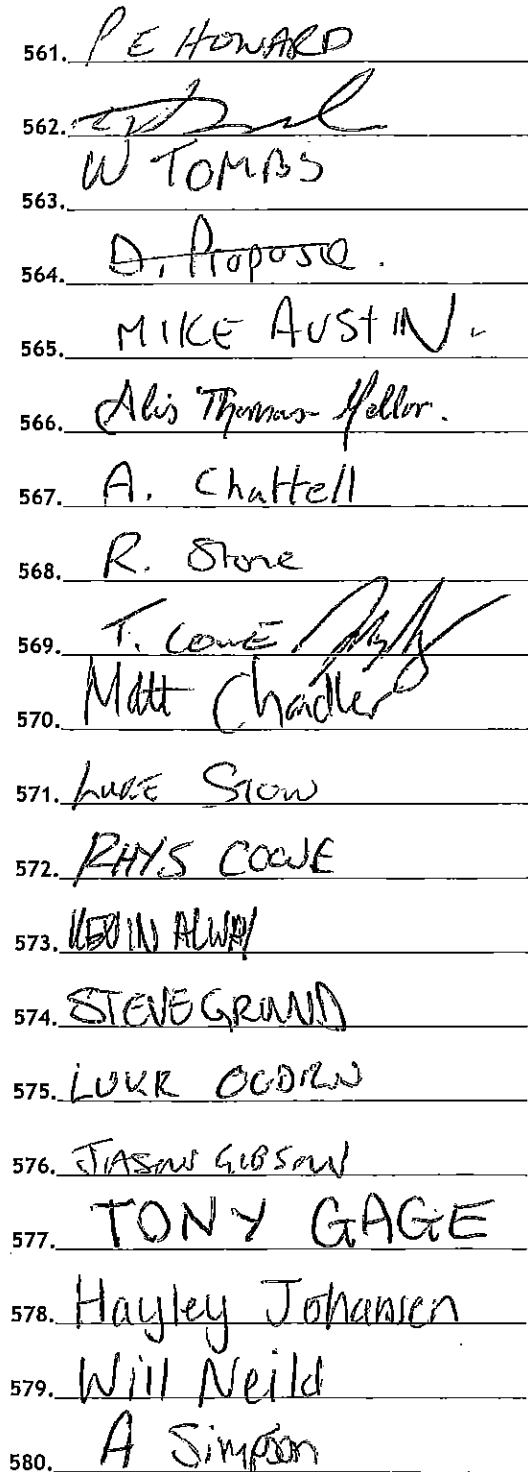 561. P E HOWARD
562.
W TOMBS
563.
564. D. Propose.
565. MIKE AUSTIN.
566. Alis Thomas-Mellor.
567. A. Chattell
568. R. Stone
569. T. COWE
570. Matt Chandler
571. LUKE STOW
572. RHYS COWE
573. KEVIN ALWAY
574. STEVE GRUND
575. LUKE OGDEN
576. JASON GIBSON
577. TONY GAGE
578. Hayley Johansen
579. Will Neild
580. A Simpson